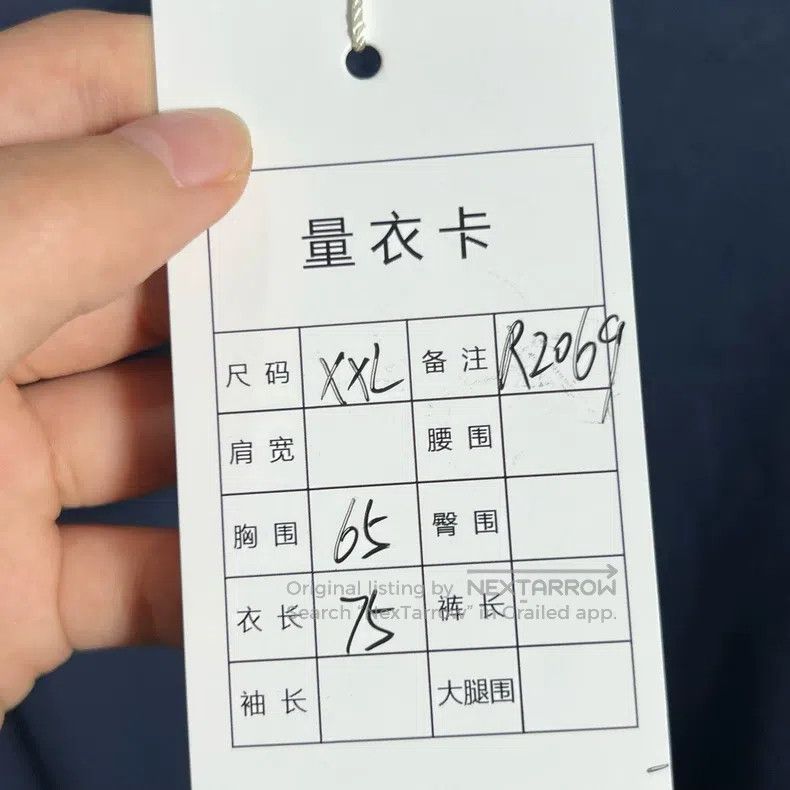 量衣卡
尺码 XXL 备注 R2069
肩宽 腰围
胸围 65 臀围
Original listing by NEXTARROW
衣长 75 裤长
Search "NexTarrow" in Grailed app.
袖长 大腿围